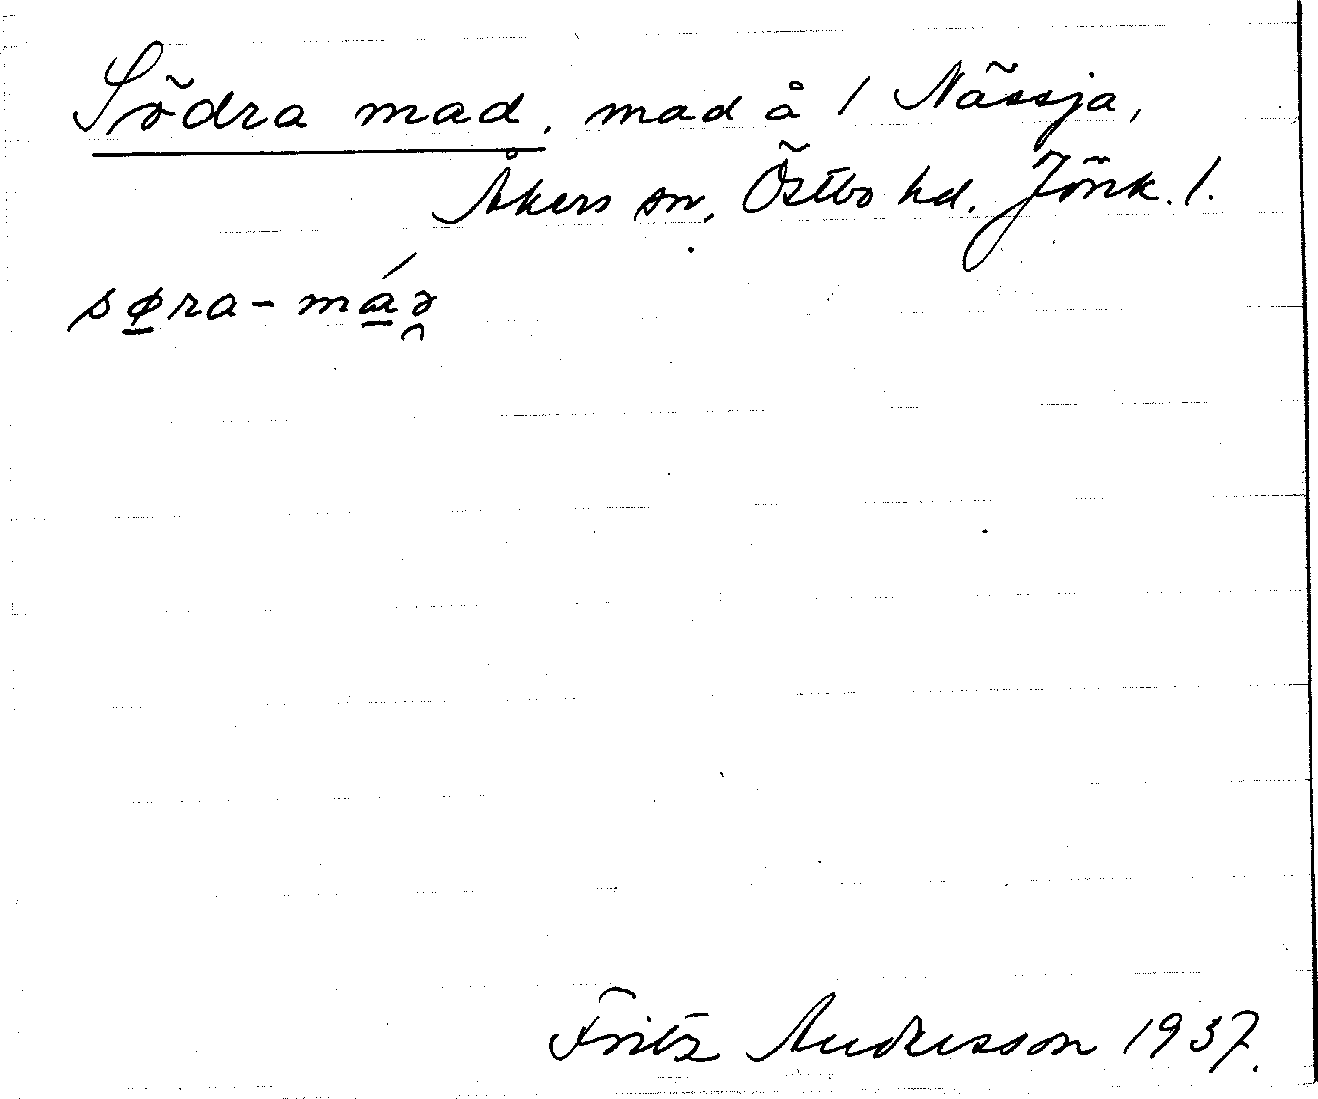 Södra mad, mad å 1 Nässja,
Åkers sn, Östbo hd. Jönk. l.
sø̱ra-má̱ə̯
Fritz Andersson 1937.